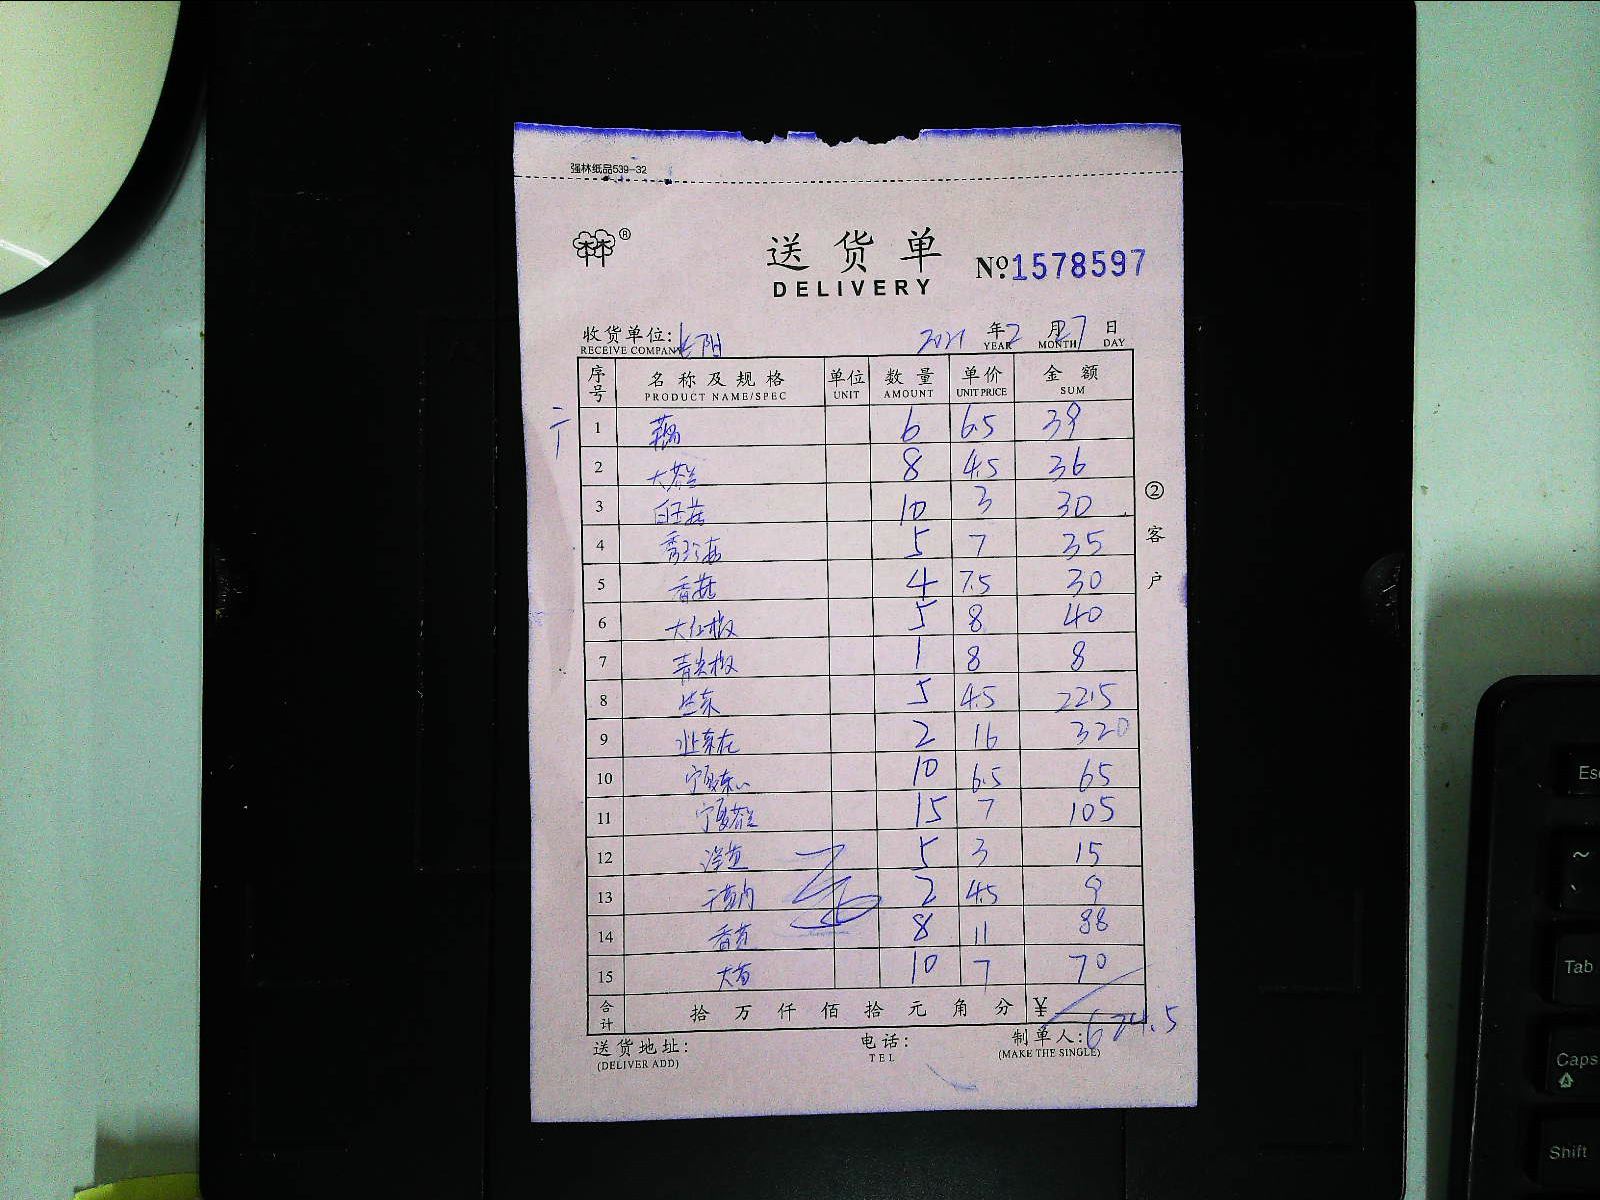 强林纸品539-32
®
送货单 No.1578597
DELIVERY
收货单位: 2021 年 2 月 27 日
RECEIVE COMPANY YEAR MONTH DAY
序号 名称及规格 单位 数量 单价 金额
PRODUCT NAME/SPEC UNIT AMOUNT UNIT PRICE SUM
1 藕 6 6.5 39
2 8 4.5 36
3 白玉菇 10 3 30
4 5 7 35
5 香菇 4 7.5 30
6 大红椒 5 8 40
7 青尖椒 1 8 8
8 5 4.5 22.5
9 2 16 320
10 10 6.5 65
11 15 7 105
12 5 3 15
13 2 4.5 9
14 8 11 88
15 10 7 70
合计 拾 万 仟 佰 拾 元 角 分 ¥ 624.5
送货地址: 电话: 制单人:
(DELIVER ADD) TEL (MAKE THE SINGLE)
② 客户
Esc
~
Tab
Caps
A
Shift